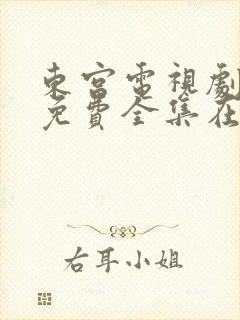 東宮電視劇
免費全集在
右耳小姐